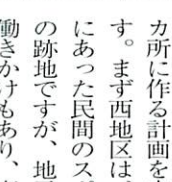 カ所に作る計画を
す。まず西地区は、
にあった民間のス
の跡地ですが、地
働きかけもあり、